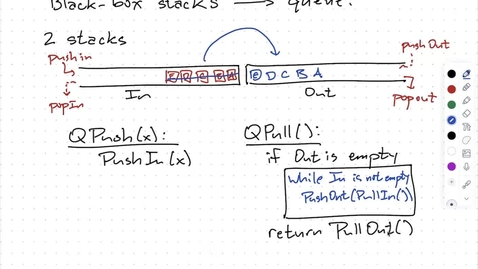 Black-box stacks → queue.
2 stacks
push in
push Out
E D C B A
In
Out
pop In
pop out
QPush(x):
PushIn(x)
QPull():
if Out is empty
while In is not empty
PushOut(PullIn())
return PullOut()